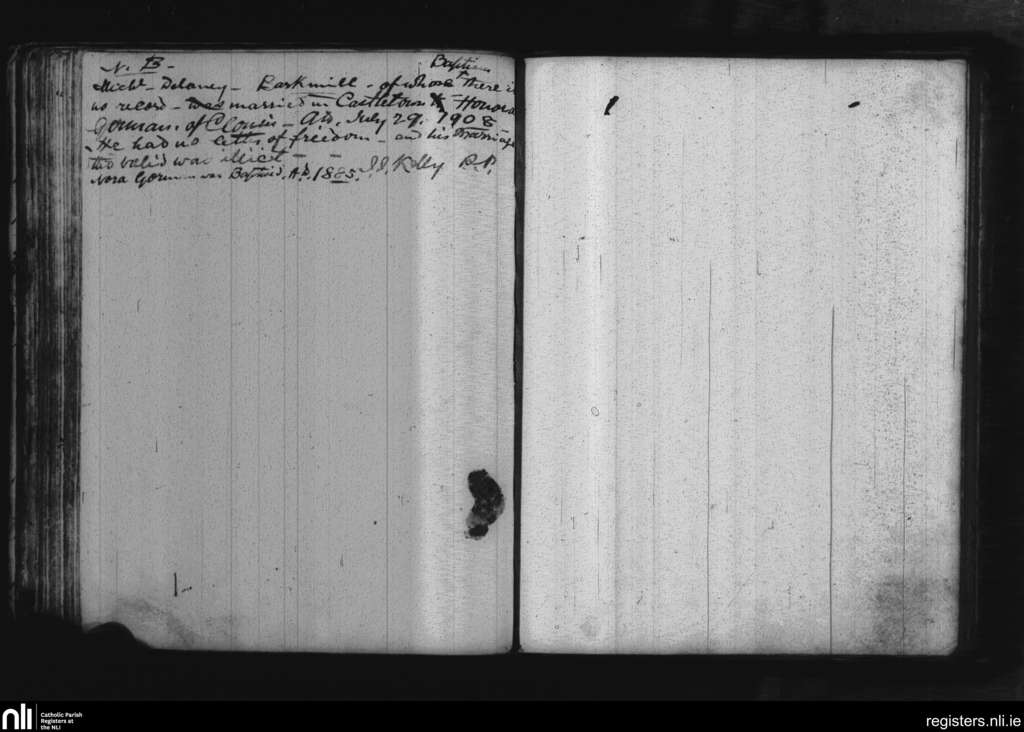 N. B -
Michl Delaney - Barkmill - of whose Baptism there is
no record - was married in Castletown to Honora
Gorman, of Clonin - A.D. July 29, 1908
He had no letts. of freedom - and his Marriage
tho valid was illicit - -
Nora Gorman was Baptised, A.D. 1885. J.J. Kelly P.P.
nli
Catholic Parish
Registers at
the NLI
registers.nli.ie